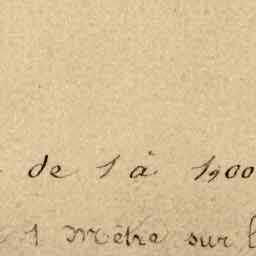 de 1 à 1,00
1 Mètre sur l